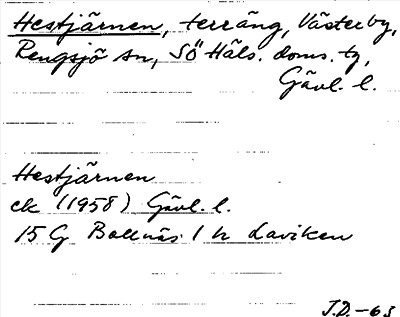 Hestjärnen, terräng, Västerby,
Rengsjö sn, SÖ Häls. doms. tg,
Gävl. l.
Hestjärnen
ek (1958) Gävl. l.
15 G Bollnäs 1 h Laviken
J.D.-63